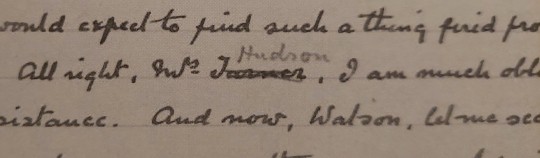 would expect to find such a thing fired fro
All right, Mrs Turner Hudson, I am much obl
sistance. And now, Watson, let me see